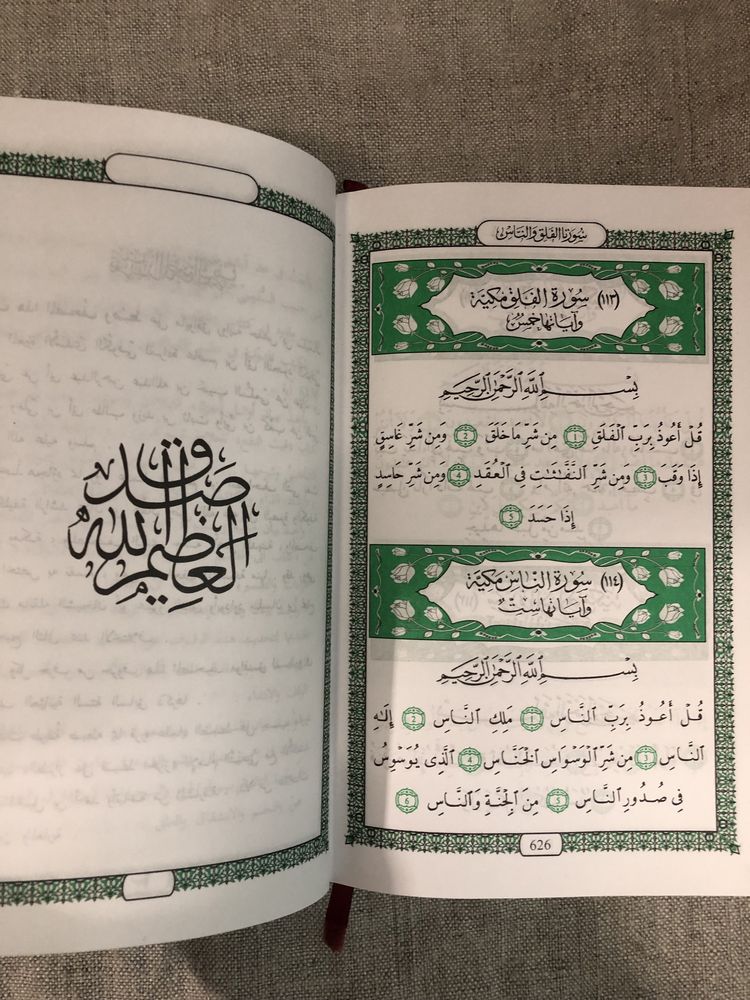 سورتا الفلق والناس
(١١٣) سُورَة الفَلَق مَكيَّة
وَآيَاتهَا خَمسُ
بِسْمِ اللَّهِ الرَّحْمَٰنِ الرَّحِيمِ
قُلْ أَعُوذُ بِرَبِّ الْفَلَقِ 1 مِن شَرِّ مَا خَلَقَ 2 وَمِن شَرِّ غَاسِقٍ
إِذَا وَقَبَ 3 وَمِن شَرِّ النَّفَّـٰثَـٰتِ فِى الْعُقَدِ 4 وَمِن شَرِّ حَاسِدٍ
إِذَا حَسَدَ 5
(١١٤) سُورَة النَّاسِ مَكيَّة
وَآيَاتهَا سِتٌ
بِسْمِ اللَّهِ الرَّحْمَٰنِ الرَّحِيمِ
قُلْ أَعُوذُ بِرَبِّ النَّاسِ 1 مَلِكِ النَّاسِ 2 إِلَـٰهِ
النَّاسِ 3 مِن شَرِّ الْوَسْوَاسِ الْخَنَّاسِ 4 الَّذِى يُوَسْوِسُ
فِى صُدُورِ النَّاسِ 5 مِنَ الْجِنَّةِ وَالنَّاسِ 6
626
صَدَقَ اللَّهُ
العَظِيم